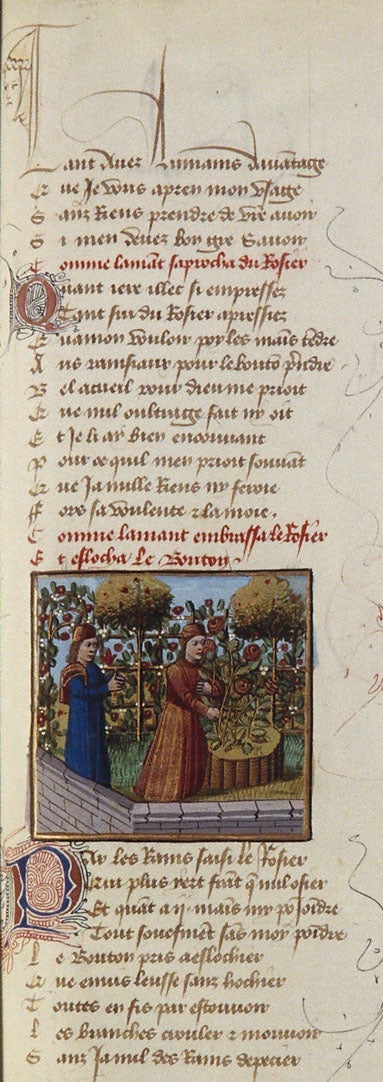 Tant avez humains davātage
Que Je vous apren mon vsage
Sanz Riens prendre de vr̄e auoir
Si men deuez bon gre Sauoir
Comme lamāt saprocha du Rosier
Quant iere illec si empressez
Tant fui du Rosier apressiez
Qua mon vouloir poy les maīs tēdre
Aus rainsiaux pour le bouto p̄ndre
Bel acueil pour dieu me prioit
Que nul oultraige fait ny oit
Et Je li ay bien encouuant
Pour ce quil men prioit souuant
Que Ja nulle Riens ny feroie
Fors sa voulente & la moie.
Comme lamant embrassa le Rosier
Et eslocha Le Bouton
Par les Rains saisi le Rosier
Qui plus vert frāt q̄ nul osier
Et quāt a ij. mais my po Joīdre
Tout souefmēt sās moy poīdre
Le Bouton pris a eslochier
Que enuis leusse sanz hochier
Toutes en fis par estouuoir
Les branches crouler & mouuoir
Sanz Ja nul des Rains depecier